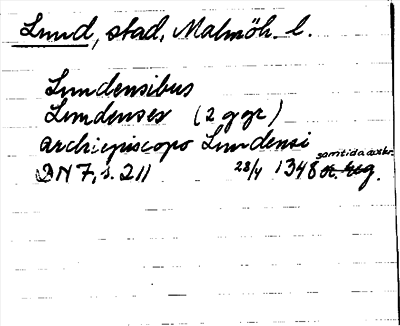 Lund, stad, Malmöh. l.
Lundensibus
Lundenses (2 ggr)
archiepiscopo Lundensi
DN 7, s. 211 28/4 1348 samtida avskr.